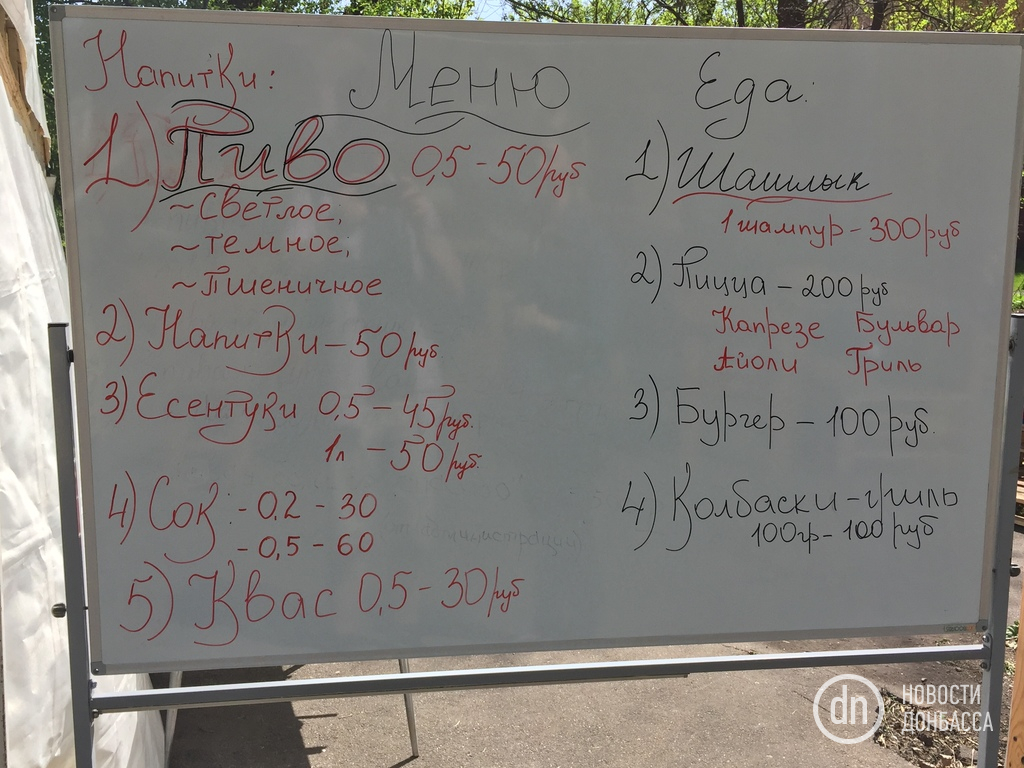 Меню
Напитки:
1) Пиво 0,5 - 50 руб
~ Светлое,
~ темное,
~ Пшеничное
2) Напитки - 50 руб.
3) Есентуки 0,5 - 45 руб.
1л - 50 руб.
4) Сок: - 0,2 - 30
- 0,5 - 60
5) Квас 0,5 - 30 руб
Еда:
1) Шашлык
1 шампур - 300 руб
2) Пицца - 200 руб
Капрезе Бульвар
Айоли Гриль
3) Бургер - 100 руб.
4) Колбаски - гриль
100гр - 100 руб
dn НОВОСТИ
ДОНБАССА